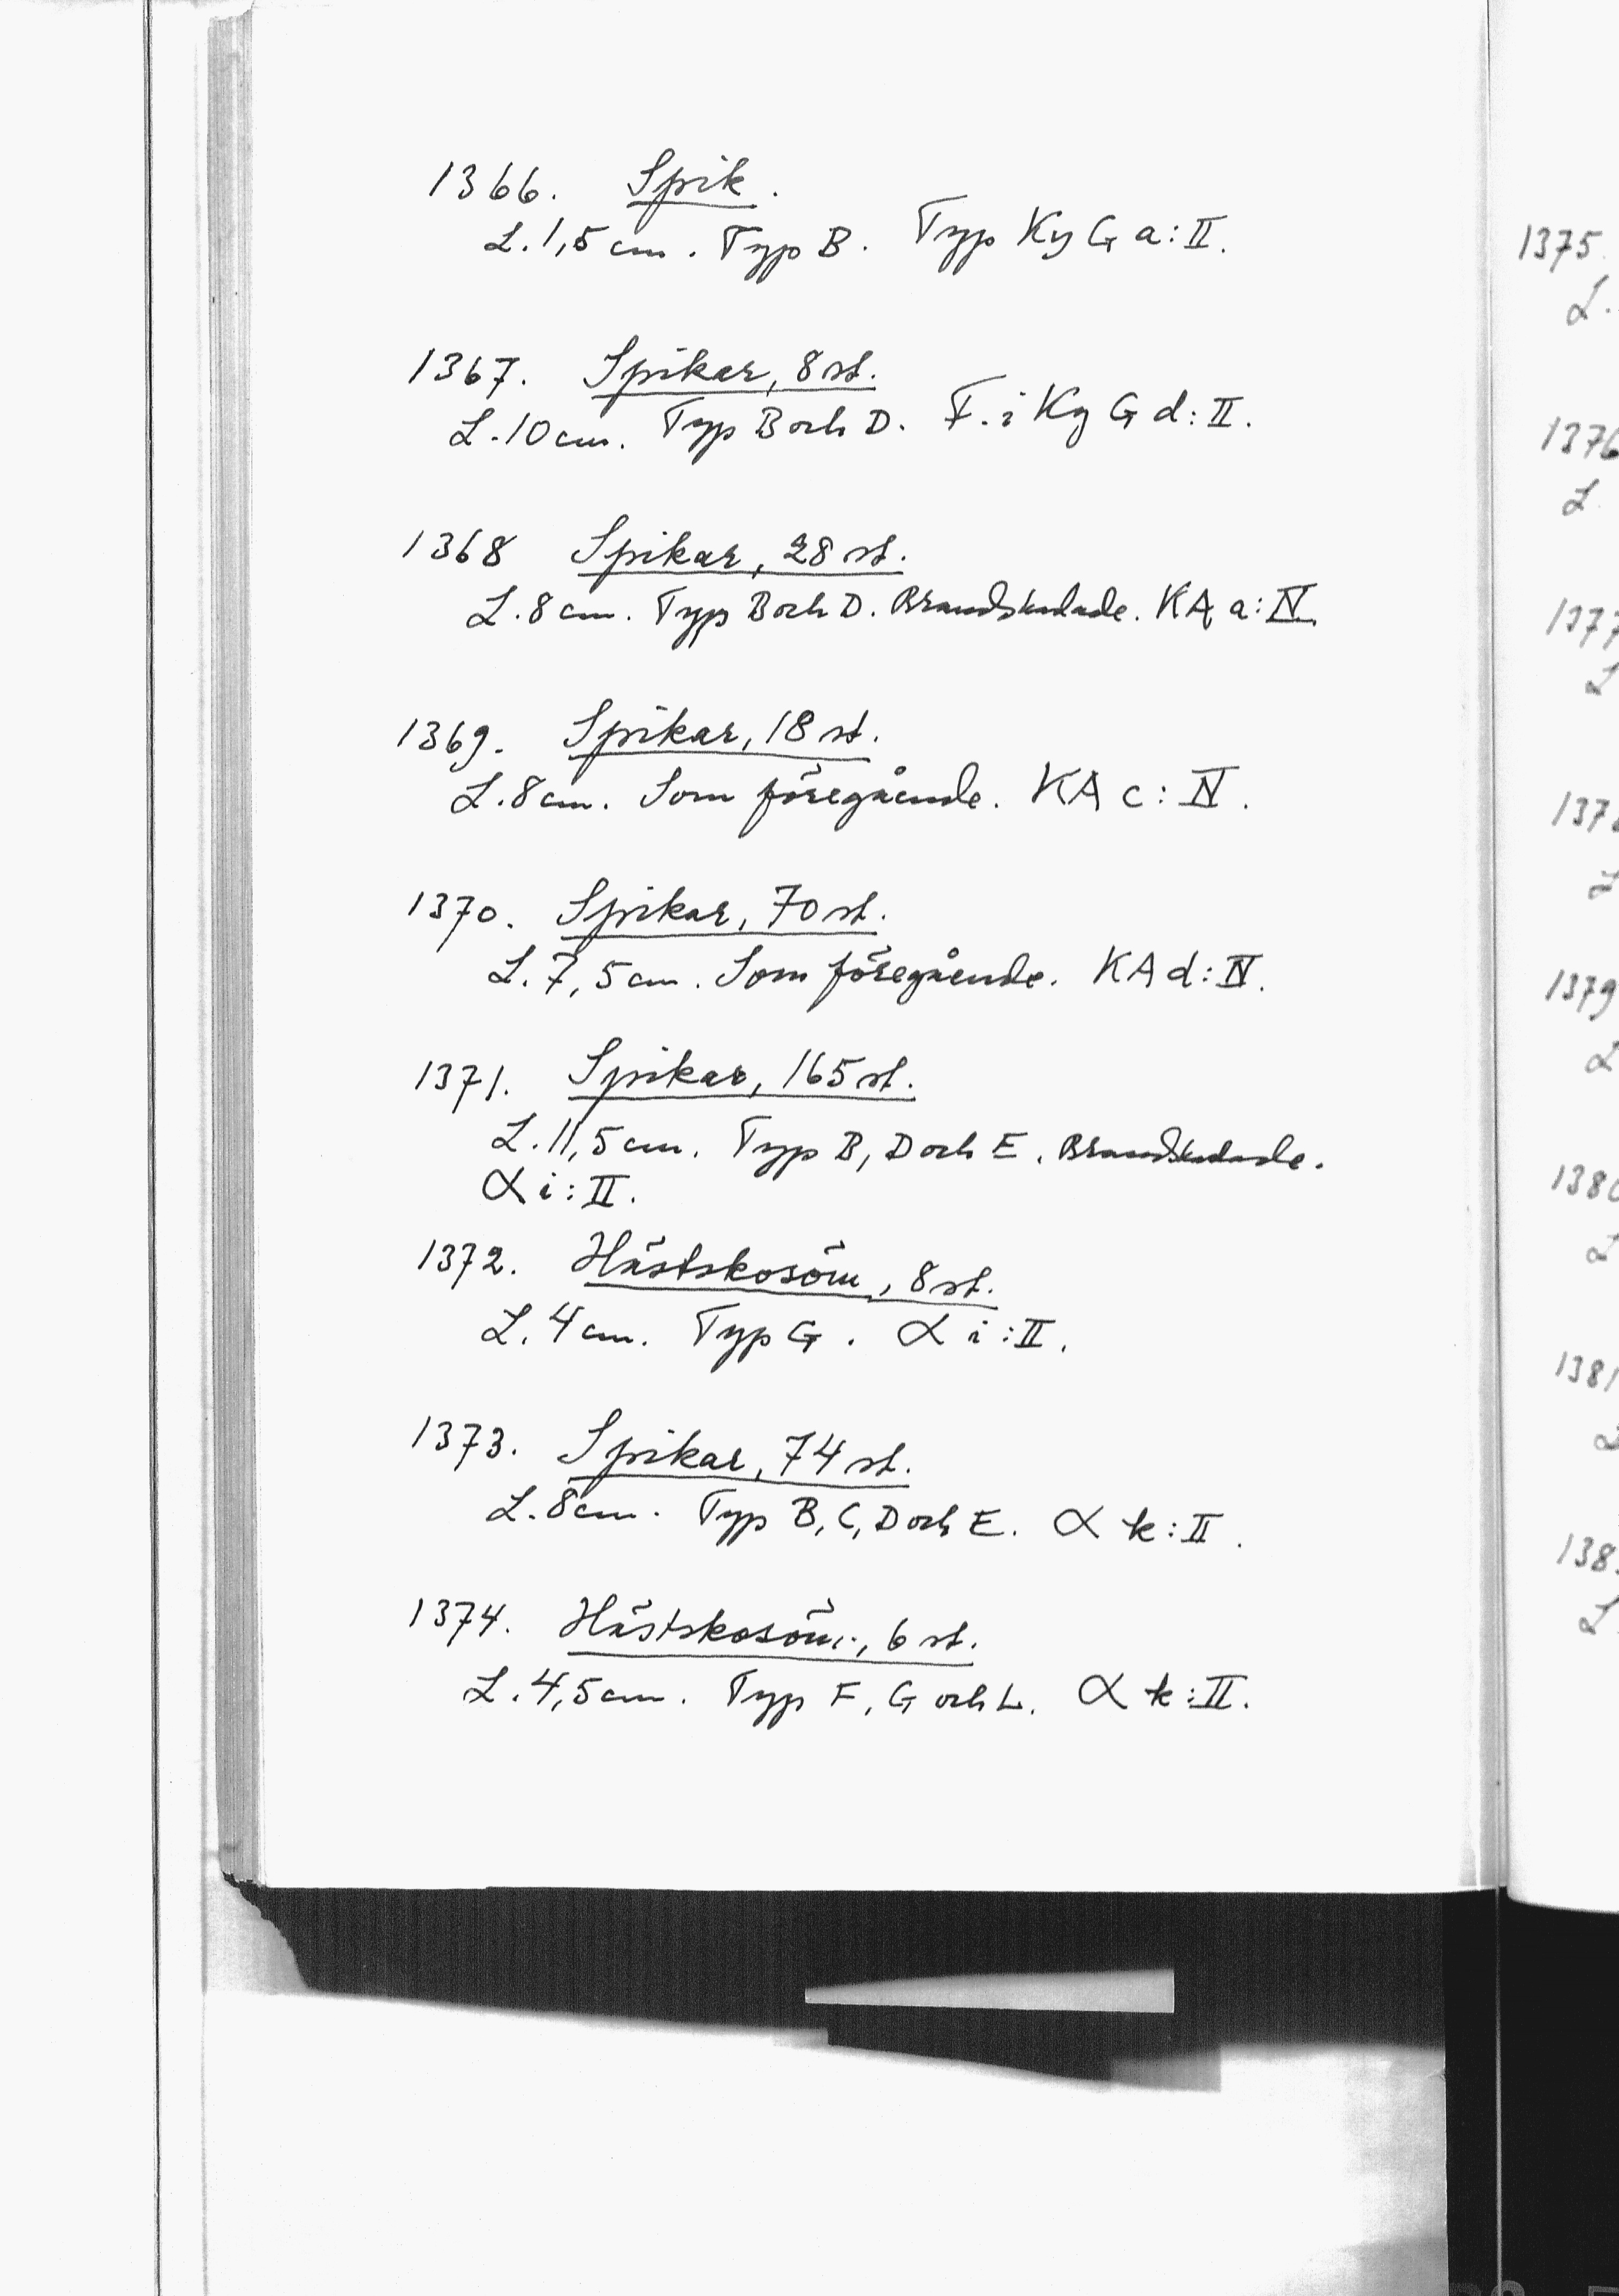 1366. Spik.
L. 1,5 cm. Typ B. Typ Ky G a:II.
1367. Spikar, 8 st.
L. 10 cm. Typ B och D. F. i Ky G d:II.
1368 Spikar, 28 st.
L. 8 cm. Typ B och D. Brandskadade. KA a:IV.
1369. Spikar, 18 st.
L. 8 cm. Som föregående. KA c:IV.
1370. Spikar, 70 st.
L. 7,5 cm. Som föregående. KA d:IV.
1371. Spikar, 165 st.
L. 11,5 cm. Typ B, D och E. Brandskadade.
α i:II.
1372. Hästskosöm, 8 st.
L. 4 cm. Typ G. α i:II.
1373. Spikar, 74 st.
L. 8 cm. Typ B, C, D och E. α k:II.
1374. Hästskosöm, 6 st.
L. 4,5 cm. Typ F, G och L. α k:II.
1375.
L.
1376
L
1377
L
137
L
1379
L
1380
L
1381
L
138
L